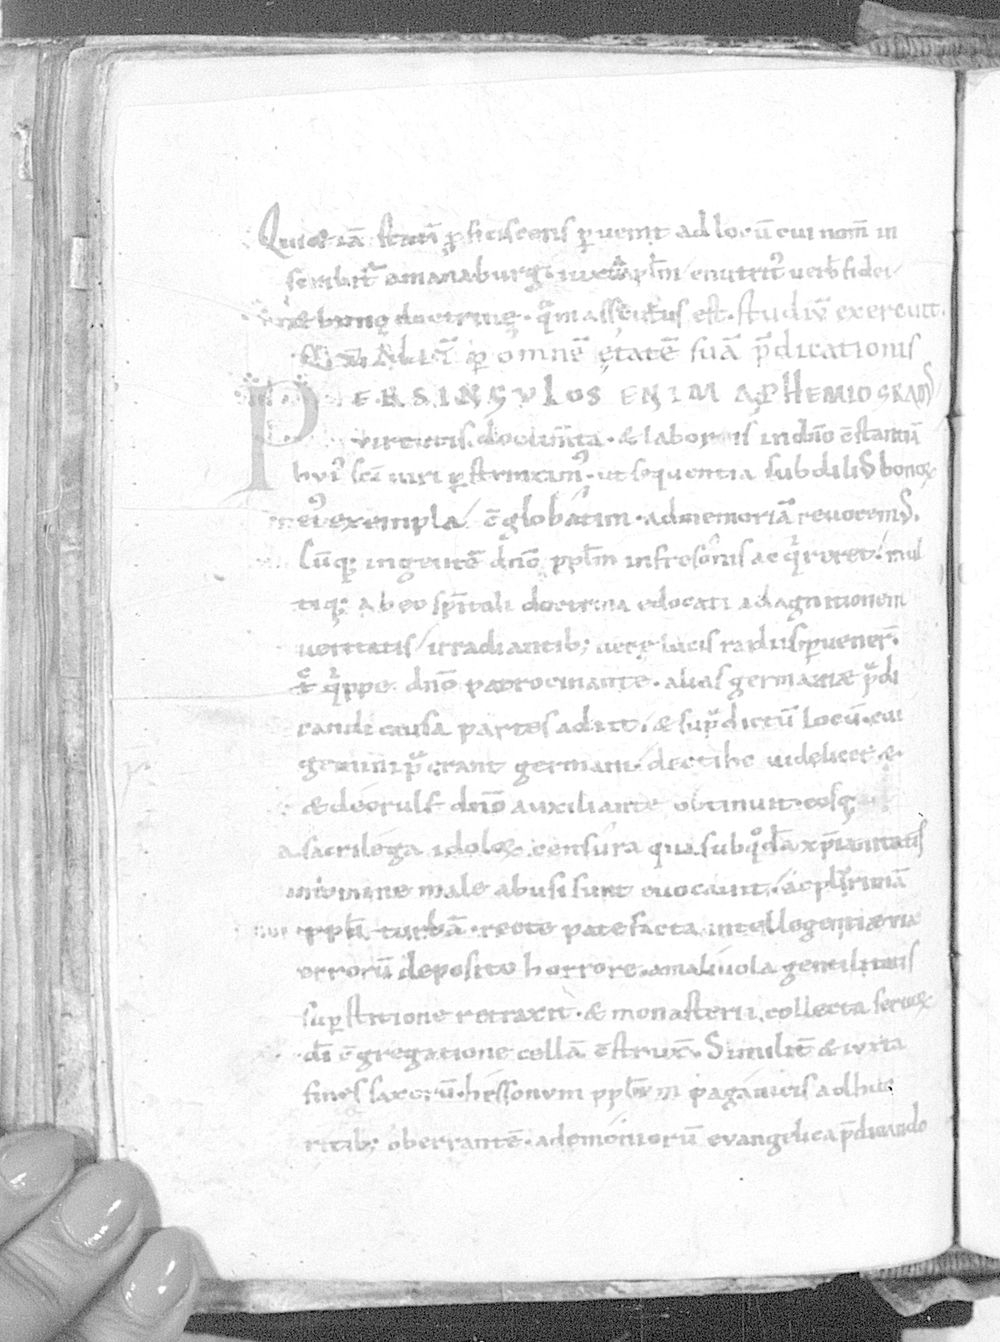 Qui & iā statī ꝓficiscens ꝑuenit ad locū cui nom̄ in
scribit᷑ amanaburg iuxta ap̄lm enutrit᷑ uerb fidei
& bonę doctrinę · quā assecutus est · studiū exercuit.
ꝑ omnē ętatē suā p̄dicationis
PER SINGVLOS ENIM APHEMIO GRAD᷒
virtutis. documīta · & laboris in dn̄o c̄stantiā
hui᷒ sc̄i uiri ꝑstrinxim᷒ · ut sequentia subdilis bonoꝝ
ei᷒ exempla / c̄globatim · ad memoriā reuocem᷒.
Cūq; ingentē dn̄o ppl̄m in fresonis acq̇reret / mul
tiq; ab eo sp̄itali doctrina edocati ad agnitionem
ueritatis / irradiantib; uerę lucis radiis ꝑuener̄ ·
T̄ quippe dn̄o patrocinante · alias germaniæ p̄di
candi causa partes adiit / & sup̄dictū locū · cui
gemini p̄erant germani · dettihc videlicet &
& deorulf dn̄o auxiliante obtinuit · eosq;
a sacrilega idoloꝝ censura qua sub quodā xp̄ianitatis
nomine male abusi sunt euocauit · ac plurimā
ppl̄i turbā · recte patefacta intellegentiæ uia
errorū deposito horrore · a maliuola gentilitatis
suꝑstitione retraxit · & monasterii collecta seruoꝝ
dī c̄gregatione cellā c̄struxit · Similit̄ & iuxta
fines saxonū · hessonum ppl̄m paganicis adhuc
ritib; oberrantē · a demoniorū evangelica p̄dicando